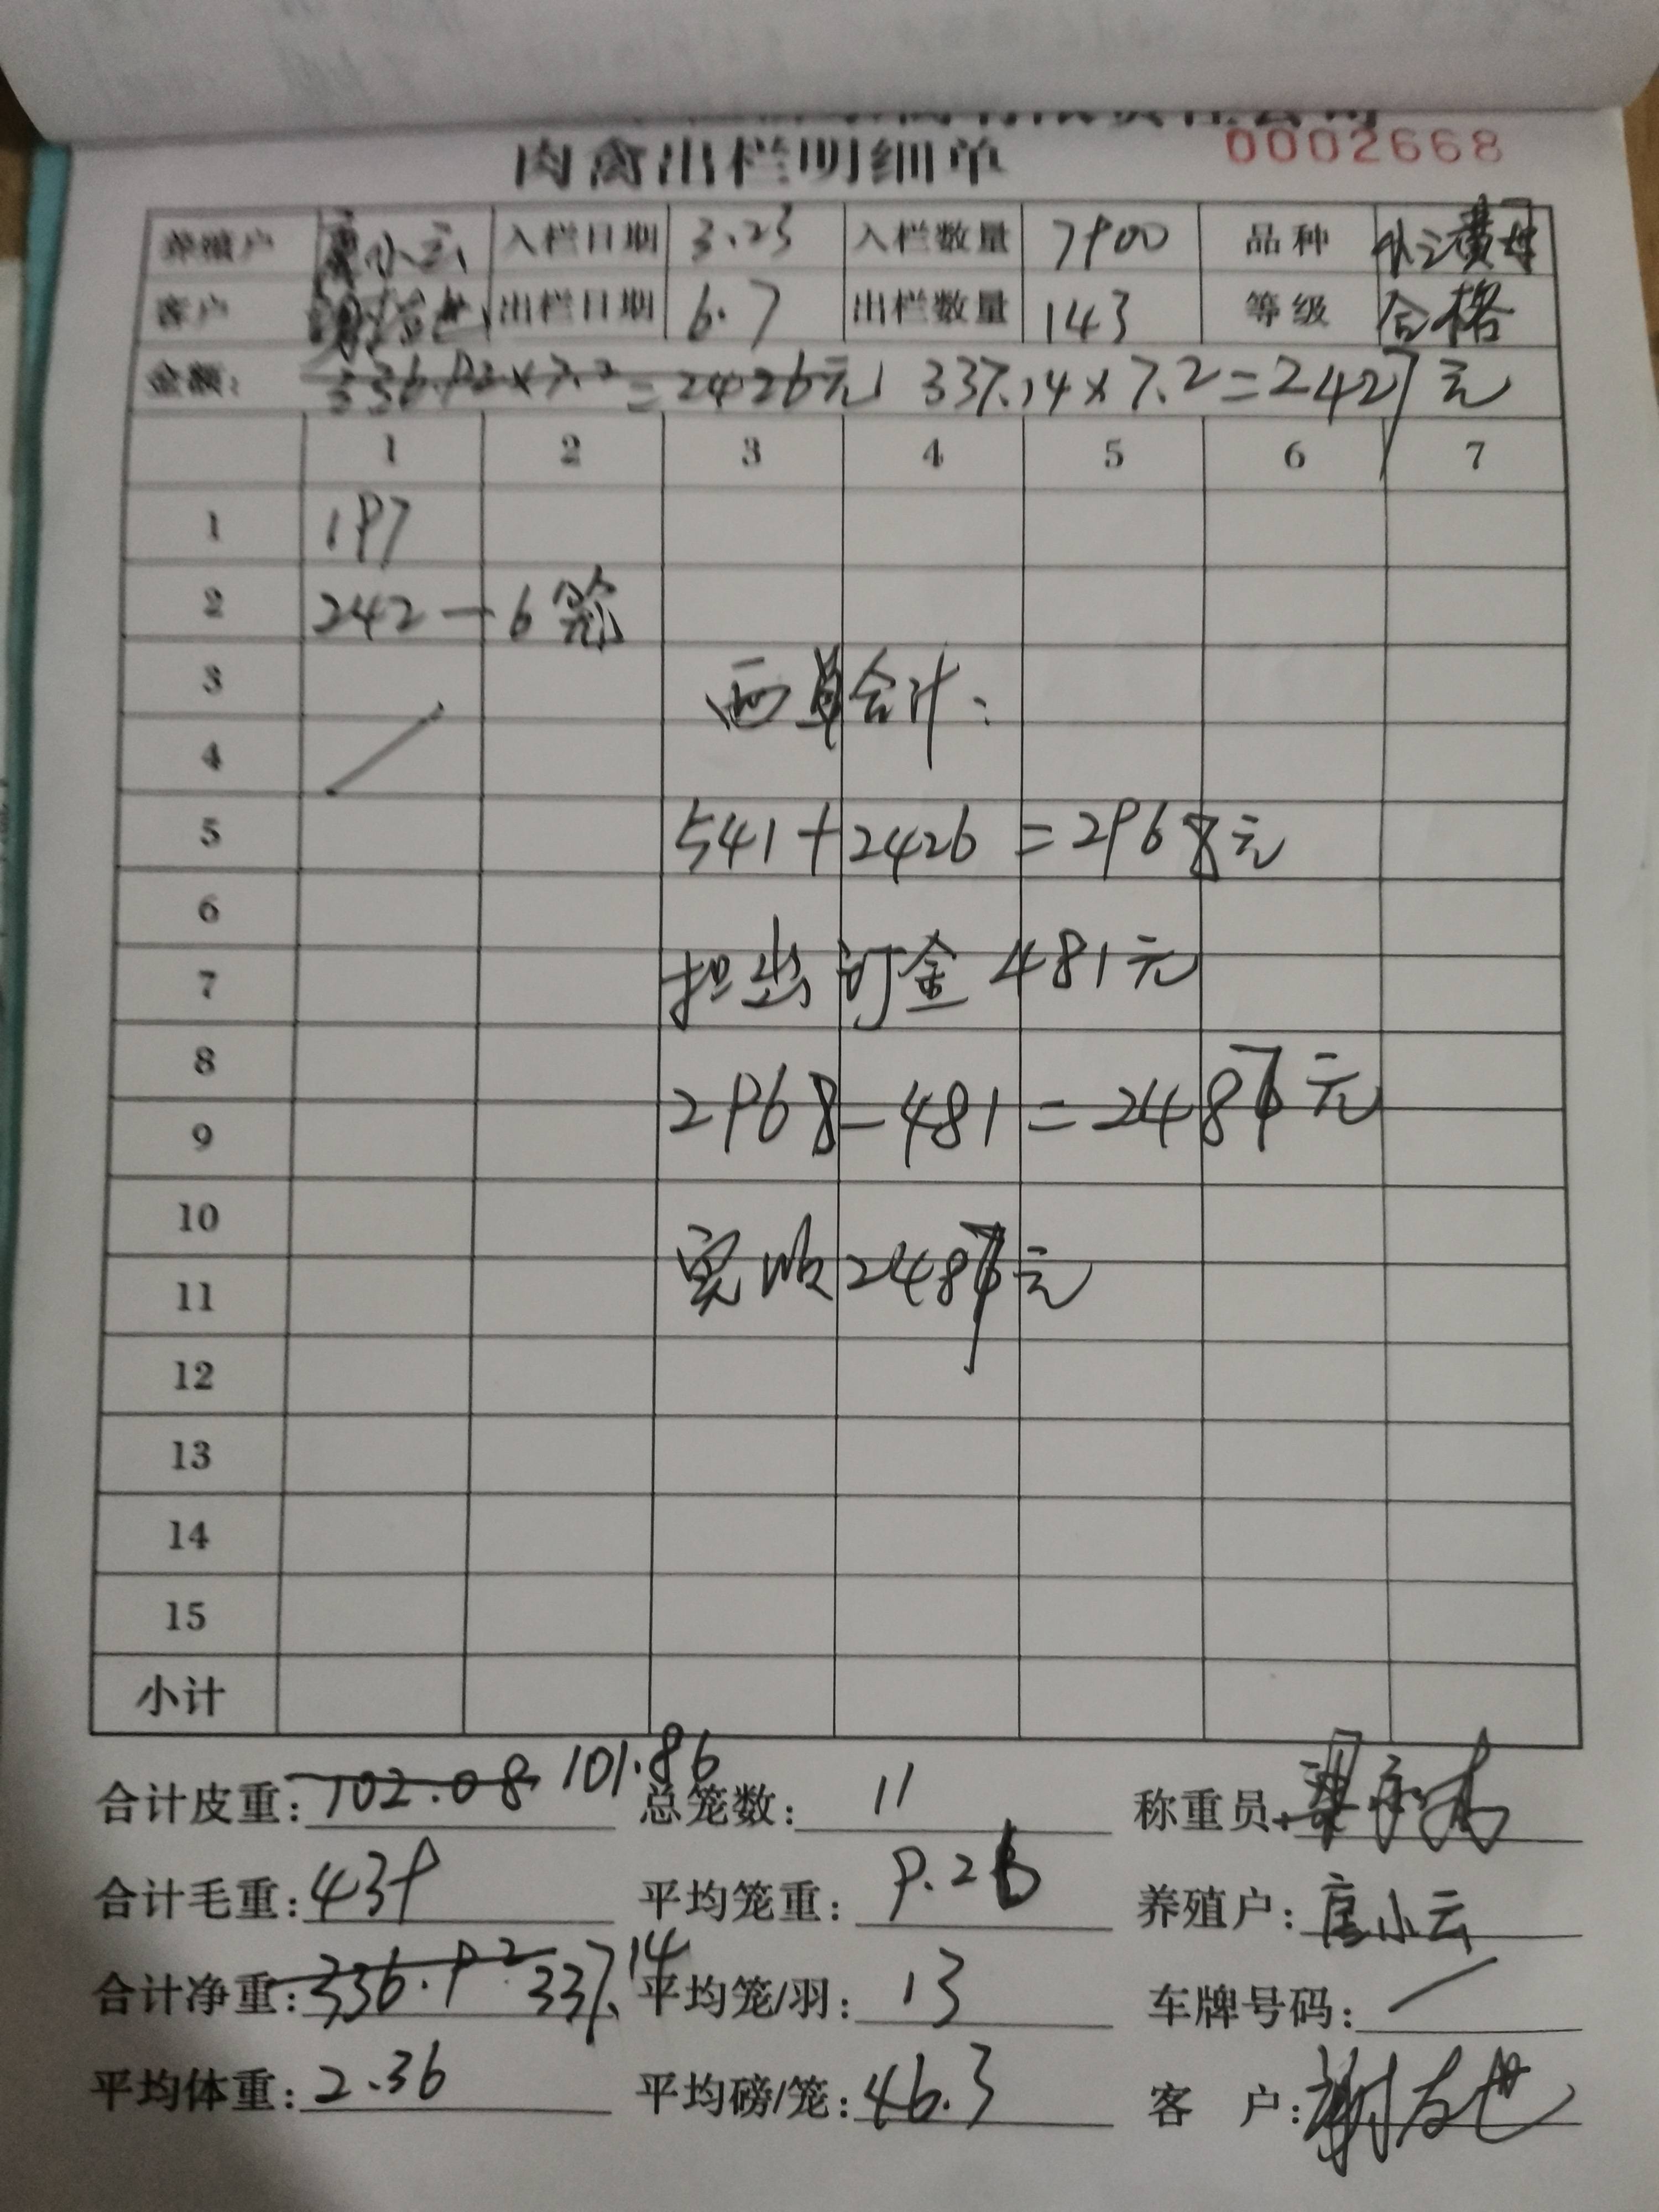 肉禽出栏明细单 0002668
养殖户 唐小云 入栏日期 3.23 入栏数量 7900 品种
客户 出栏日期 6.7 出栏数量 143 等级 合格
金额: 336.92×7.2=2426元 337.14×7.2=2427元
1 2 3 4 5 6 7
1 197
2 242-6笼
3 两单合计:
4
5 541+2426=2968元
6
7 扣出订金481元
8
9 2968-481=2487元
10
11 实收2487元
12
13
14
15
小计
合计皮重: 102.08 101.86 总笼数: 11 称重员:
合计毛重: 439 平均笼重: 9.26 养殖户: 唐小云
合计净重: 336.92 337.14 平均笼/羽: 13 车牌号码:
平均体重: 2.36 平均磅/笼: 46.3 客 户: